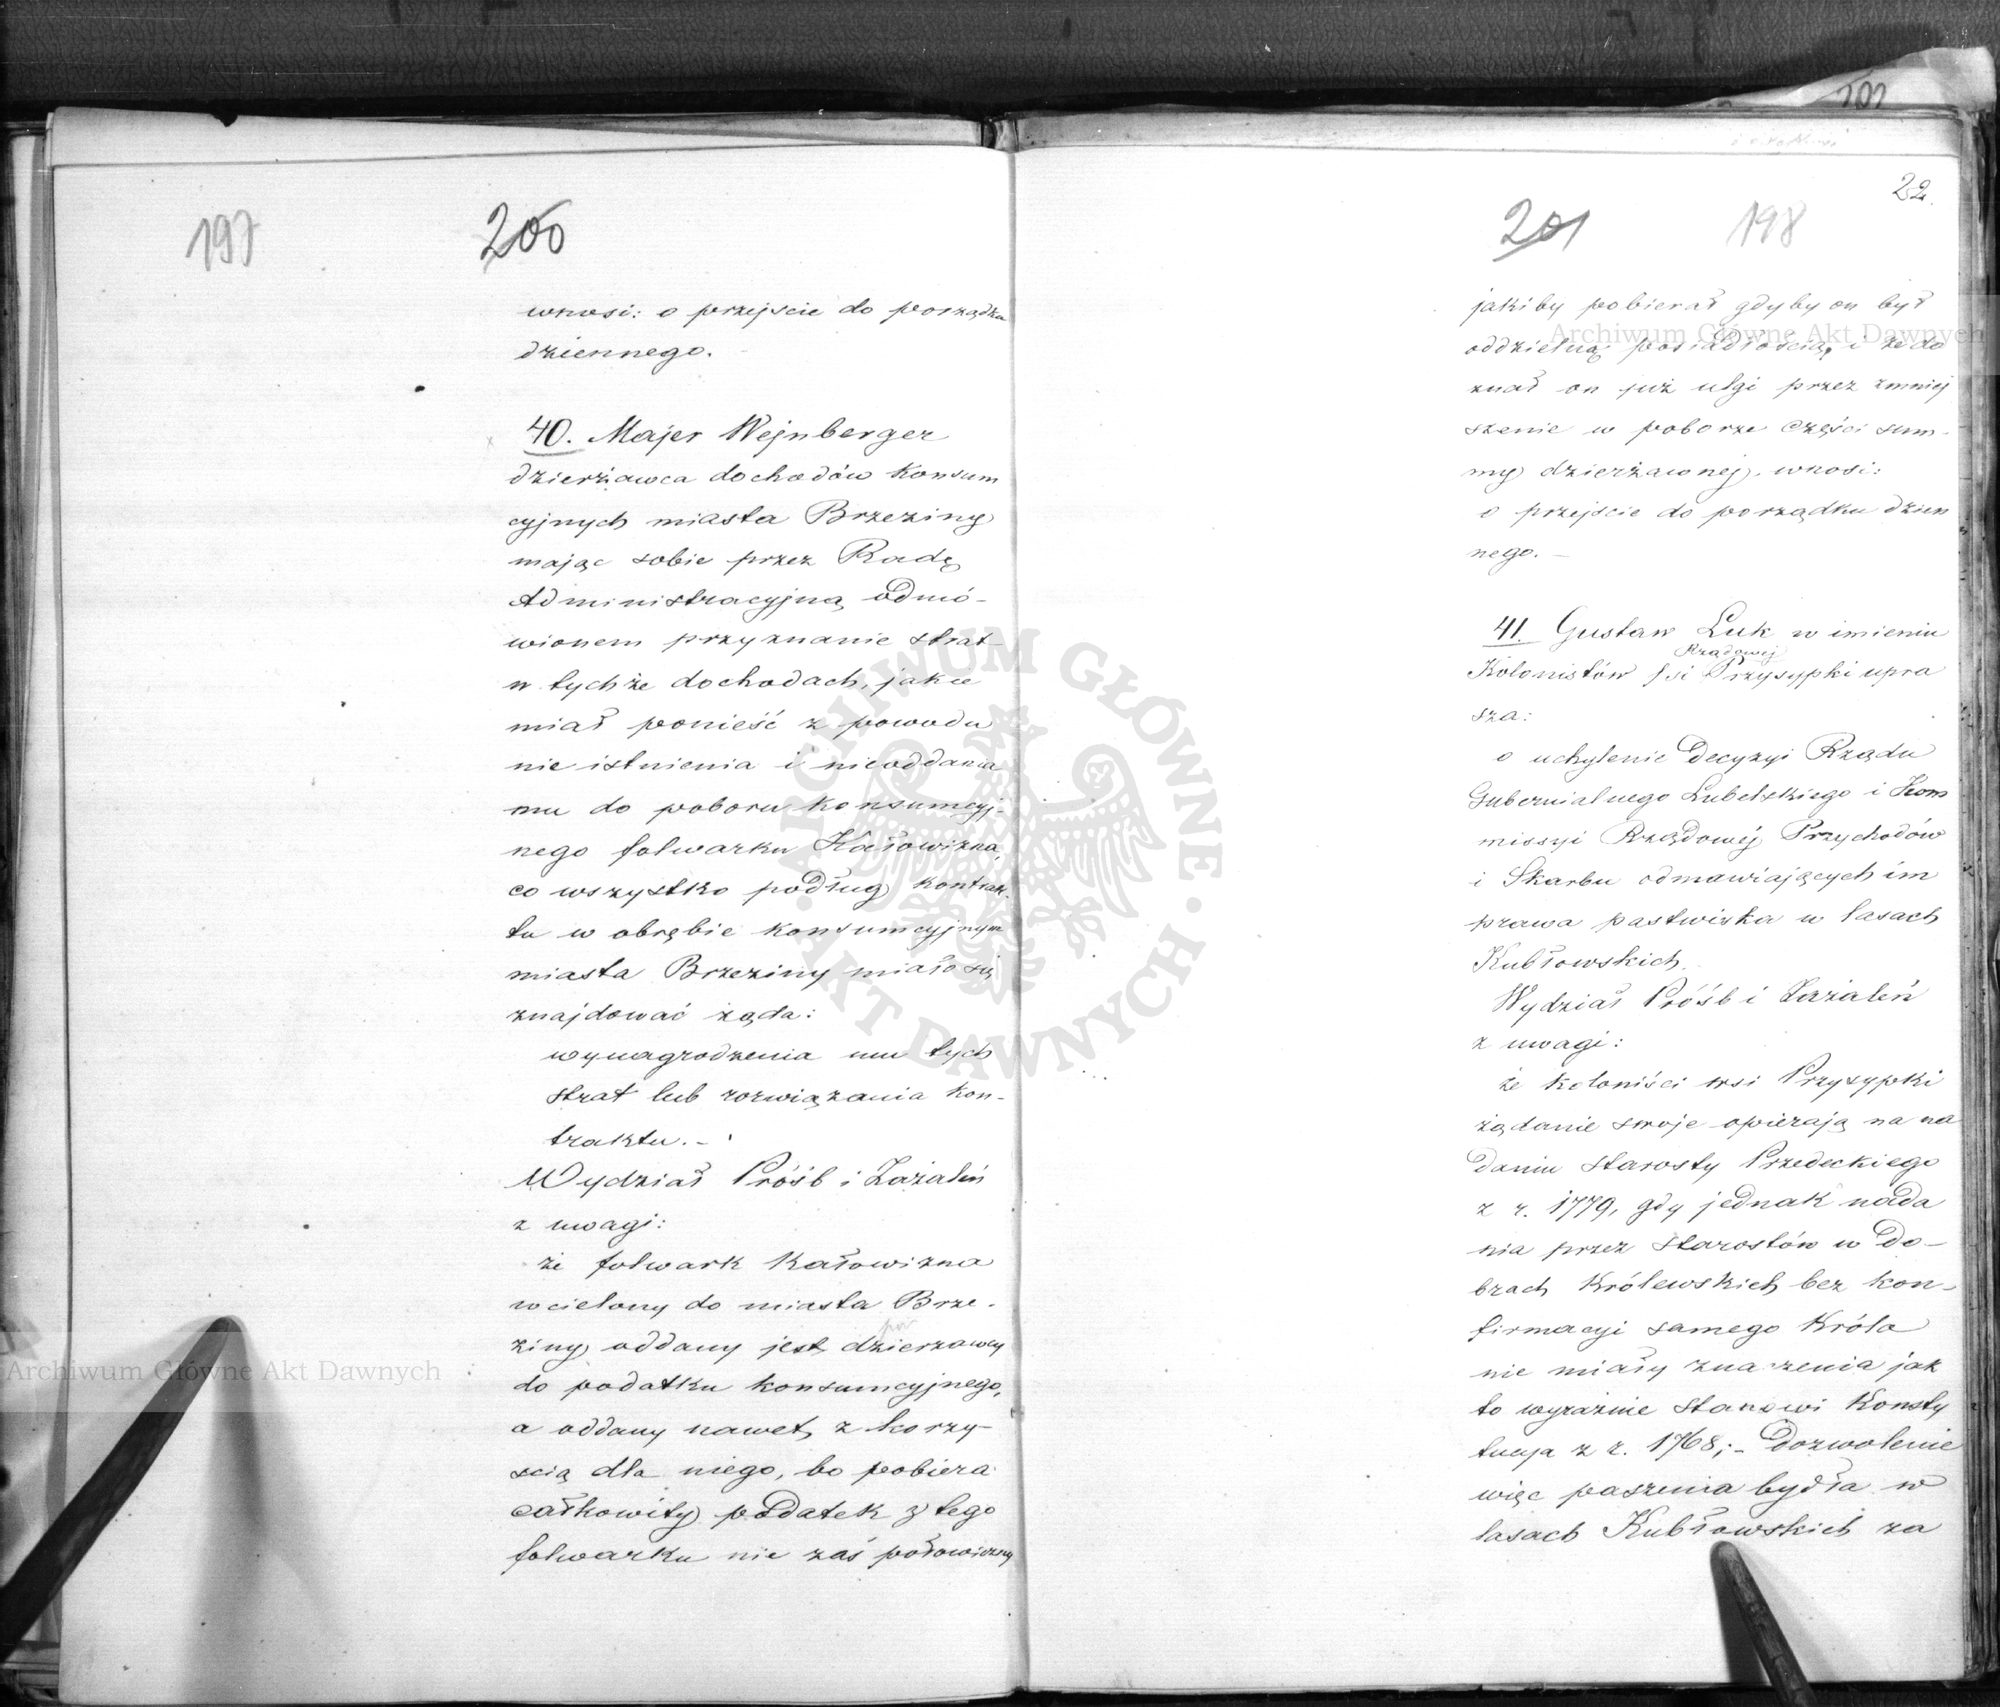 197
200
wnosi: o przejście do porządku
dziennego.
40. Majer Wejnberger
dzierżawca dochodów Konsum
cyjnych miasta Brzeziny
mając sobie przez Radę
Administracyjną odmó-
wionem przyznanie strat
w tychże dochodach, jakie
miał ponieść z powodu
nie istnienia i nieoddania
mu do poboru konsumcyj-
nego folwarku Kałowizna,
co wszystko podług kontrak-
tu w obrębie konsumcyjnym
miasta Brzeziny miało się
znajdować żąda:
wynagrodzenia mu tych
strat lub rozwiązania kon-
traktu. -
Wydział Próśb i Zażaleń
z uwagi:
że folwark Kałowizna
wcielony do miasta Brze-
ziny oddany jest dzierżawcy
do podatku konsumcyjnego,
a oddany nawet z korzy-
ścią dla niego, bo pobiera
całkowity podatek z tego
folwarku nie zaś połowiczny
202
22.
201
198
jakiby pobierał gdyby on był
oddzielną posiadłością, i że do
znał on już ulgi przez zmniej
szenie w poborze części sum-
my dzierżawnej, wnosi:
o przejście do porządku dzien
nego. -
41. Gustaw Luk w imieniu
Rządowej
Kolonistów wsi Przysypki upra
sza:
o uchylenie Decyzyi Rządu
Gubernialnego Lubelskiego i Kom
missyi Rządowej Przychodów
i Skarbu odmawiających im
prawa pastwiska w lasach
Kubłowskich.
Wydział Próśb i Zażaleń
z uwagi:
że koloniści wsi Przysypki
żądanie swoje opierają na na
daniu starosty Przedeckiego
z r. 1779, gdy jednak nada
nia przez Starostów w Do-
brach Królewskich bez kon-
firmacyi samego Króla
nie miały znaczenia jak
to wyraźnie stanowi Konsty
tucya z r. 1768; - Dozwolenie
więc paszenia bydła w
lasach Kubłowskich za
Archiwum Główne Akt Dawnych
Archiwum Główne Akt Dawnych
ARCHIWUM GŁÓWNE · AKT DAWNYCH ·